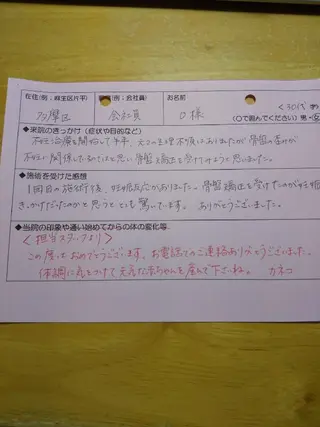 在住(例:麻生区片平)
職業(例:会社員)
お名前
多摩区
会社員
O 様
<30代
(○で囲んでください) 男・女
◆来院のきっかけ(症状や目的など)
不妊治療を開始して半年、元々生理不順ではありましたが骨盤の歪みが
不妊に関係しているのではと思い骨盤矯正を受けてみようと思いました。
◆施術を受けた感想
1回目の施術後、妊娠反応がありました。骨盤矯正を受けたのが妊娠
きっかけだったのかと思うととても驚いてます。ありがとうございました。
◆当院の印象や通い始めてからの体の変化等
<担当スタッフより>
この度はおめでとうございます。お電話でのご連絡ありがとうございました。
体調に気をつけて元気な赤ちゃんを産んで下さいね。 カネコ